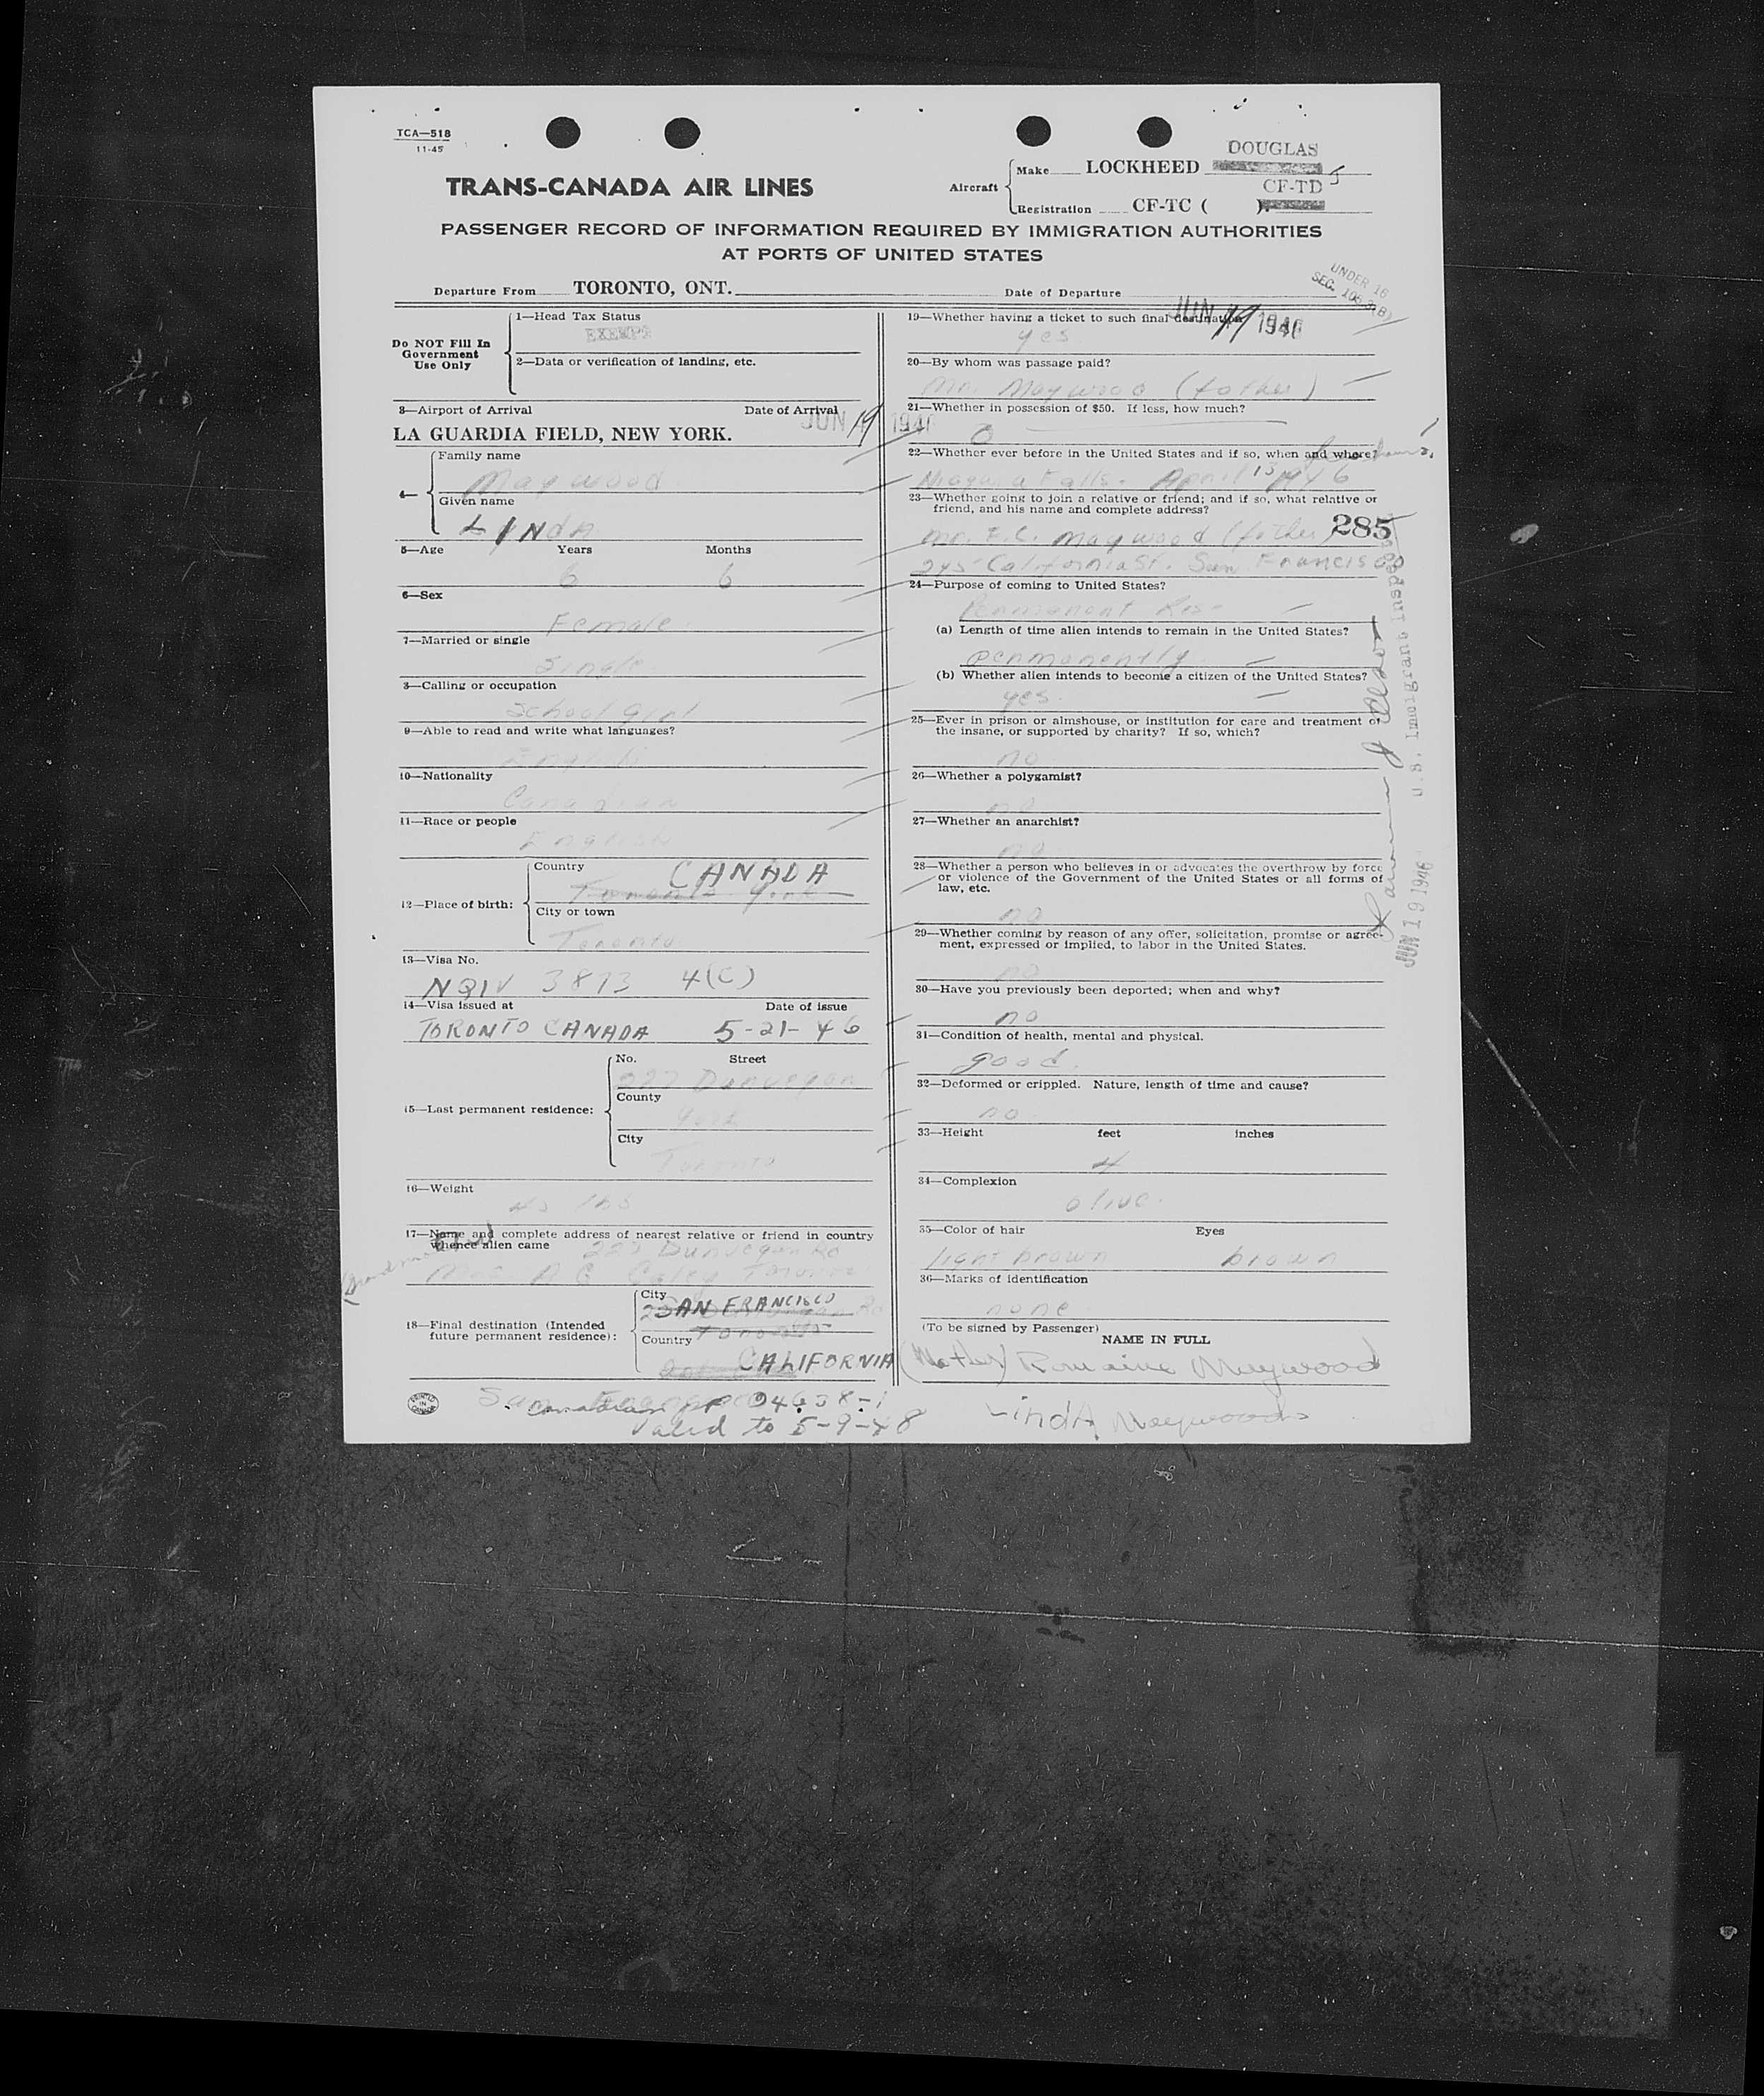 TCA—518
11-45
TRANS-CANADA AIR LINES
Aircraft
Make LOCKHEED DOUGLAS
Registration CF-TC ( ). CF-TD J
PASSENGER RECORD OF INFORMATION REQUIRED BY IMMIGRATION AUTHORITIES
AT PORTS OF UNITED STATES
Departure From TORONTO, ONT.
Date of Departure JUN 19 1946
UNDER 16
SEC. 105.3(B)
Do NOT Fill In
Government
Use Only
1—Head Tax Status
EXEMPT
2—Data or verification of landing, etc.
3—Airport of Arrival Date of Arrival
JUN 19 1946
LA GUARDIA FIELD, NEW YORK.
4—
Family name
Maywood
Given name
LINDA
5—Age Years Months
6 6
6—Sex
Female
7—Married or single
Single
8—Calling or occupation
School girl
9—Able to read and write what languages?
English
10—Nationality
Canadian
11—Race or people
English
12—Place of birth:
Country CANADA
Toronto York
City or town
Toronto
13—Visa No.
NQIV 3873 4(C)
14—Visa issued at Date of issue
TORONTO CANADA 5-21-46
15—Last permanent residence:
No. Street
Dunvegan
County
York
City
Toronto
16—Weight
45 lbs
17—Name and complete address of nearest relative or friend in country
whence alien came
Dunvegan Rd
Toronto
18—Final destination (Intended
future permanent residence):
City SAN FRANCISCO
Toronto
Country
CALIFORNIA
Canadian PP
Valid to 5-9-48
PRINTED
IN
CANADA
19—Whether having a ticket to such final destination
yes
20—By whom was passage paid?
Mr. Maywood (father)
21—Whether in possession of $50. If less, how much?
0
22—Whether ever before in the United States and if so, when and where?
Niagara Falls. April 1946
23—Whether going to join a relative or friend; and if so, what relative or
friend, and his name and complete address?
285
Mr. F.C. Maywood (father)
245 California St. San Francisco
24—Purpose of coming to United States?
Permanent Res.
(a) Length of time alien intends to remain in the United States?
permanently
(b) Whether alien intends to become a citizen of the United States?
yes
25—Ever in prison or almshouse, or institution for care and treatment of
the insane, or supported by charity? If so, which?
no
26—Whether a polygamist?
no
27—Whether an anarchist?
no
28—Whether a person who believes in or advocates the overthrow by force
or violence of the Government of the United States or all forms of
law, etc.
no
29—Whether coming by reason of any offer, solicitation, promise or agree-
ment, expressed or implied, to labor in the United States.
no
30—Have you previously been deported; when and why?
no
31—Condition of health, mental and physical.
good
32—Deformed or crippled. Nature, length of time and cause?
no
33—Height feet inches
4
34—Complexion
olive
35—Color of hair Eyes
light brown brown
36—Marks of identification
none
(To be signed by Passenger)
NAME IN FULL
(Mother) Romaine Maywood
Linda Maywood
U.S. Immigrant Inspector
JUN 19 1946